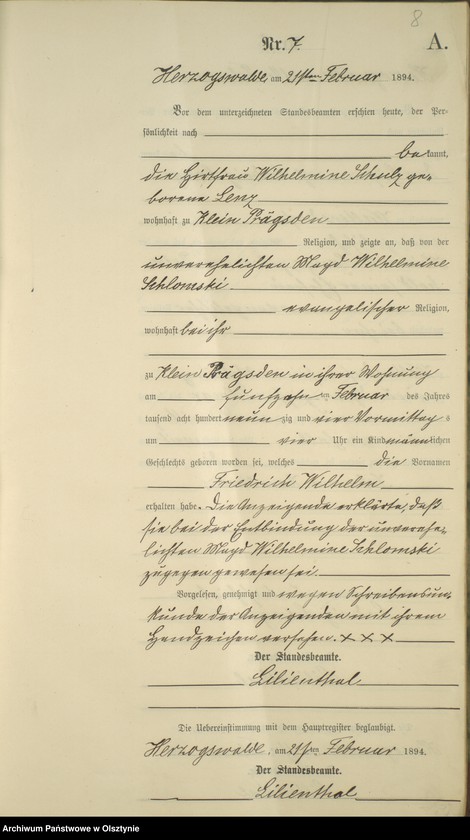 8
Nr. 7. A.
Herzogswalde, am 21sten Februar 1894.
Vor dem unterzeichneten Standesbeamten erschien heute, der Per-
sönlichkeit nach
bekannt,
die Hirtfrau Wilhelmine Schulz ge-
borene Lenz
wohnhaft zu Klein Prägsden
Religion, und zeigte an, daß von der
unverehelichten Magd Wilhelmine
Schlomski
evangelischer Religion,
wohnhaft bei ihr
zu Klein Prägsden in ihrer Wohnung
am fünfzehnten Februar des Jahres
tausend acht hundert neunzig und vier Vormittags
um vier Uhr ein Kind männlichen
Geschlechts geboren worden sei, welches die Vornamen
Friedrich Wilhelm
erhalten habe. Die Anzeigende erklärte, daß
sie bei der Entbindung der unverehe-
lichten Magd Wilhelmine Schlomski
zugegen gewesen sei.
Vorgelesen, genehmigt und wegen Schreibensun-
kunde der Anzeigenden mit ihrem
Handzeichen versehen. × × ×
Der Standesbeamte.
Lilienthal
Die Uebereinstimmung mit dem Hauptregister beglaubigt.
Herzogswalde, am 21sten Februar 1894.
Der Standesbeamte.
Lilienthal
Archiwum Państwowe w Olsztynie